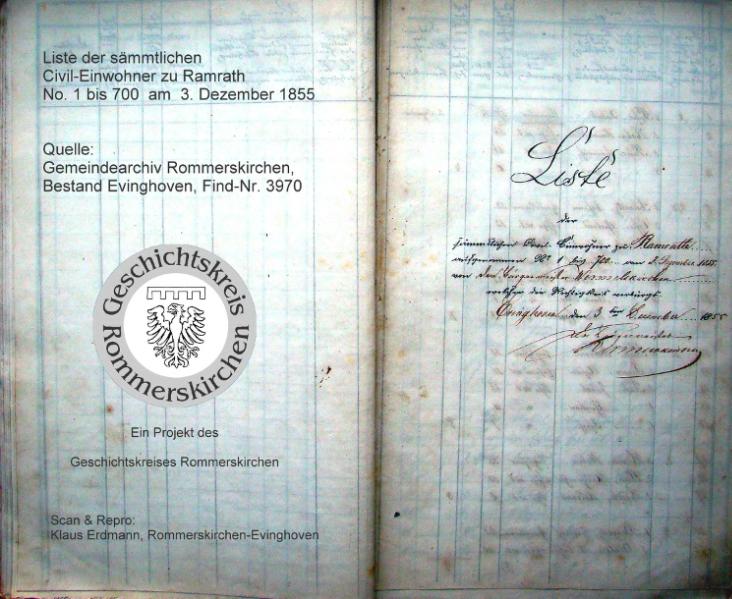 Liste der sämmtlichen
Civil-Einwohner zu Ramrath
No. 1 bis 700 am 3. Dezember 1855
Quelle:
Gemeindearchiv Rommerskirchen,
Bestand Evinghoven, Find-Nr. 3970
Geschichtskreis
Rommerskirchen
Ein Projekt des
Geschichtskreises Rommerskirchen
Scan & Repro:
Klaus Erdmann, Rommerskirchen-Evinghoven
Liste
der
sämmtlichen Civil-Einwohner zu Ramrath
aufgenommen No 1 bis 700 am 3. Dezember 1855
von dem Bürgermeister
welcher die Richtigkeit
den 3ten Dezember 1855